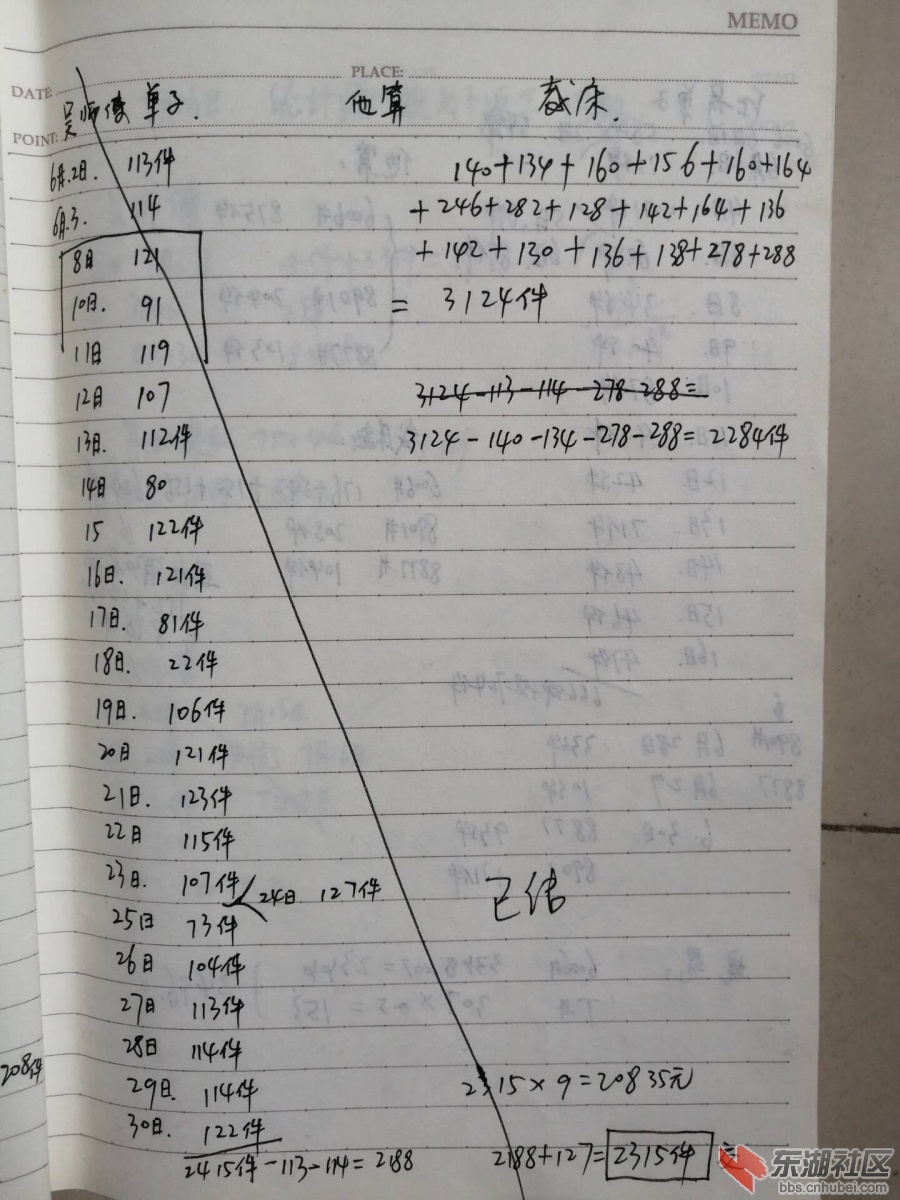 MEMO
PLACE:
DATE:
吴师傅 单子. 他算 裁床.
POINT:
6月.2日. 113件 140+134+160+156+160+164
6月3. 114 +246+282+128+142+164+136
8日 121 +142+130+136+138+278+288
10日. 91 = 3124件
11日 119
12日 107 3124-113-114-278-288=
13日. 112件 3124-140-134-278-288=2284件
14日 80
15 122件
16日. 121件
17日. 81件
18日. 22件
19日. 106件
20日 121件
21日. 123件
22日 115件
23日. 107件 24日 127件
已结
25日 73件
26日 104件
27日 113件
28日 114件
208件
29日. 114件 2315×9=20835元
30日. 122件
2415件-113-114=2188 2188+127=2315件
东湖社区
bbs.cnhubei.com